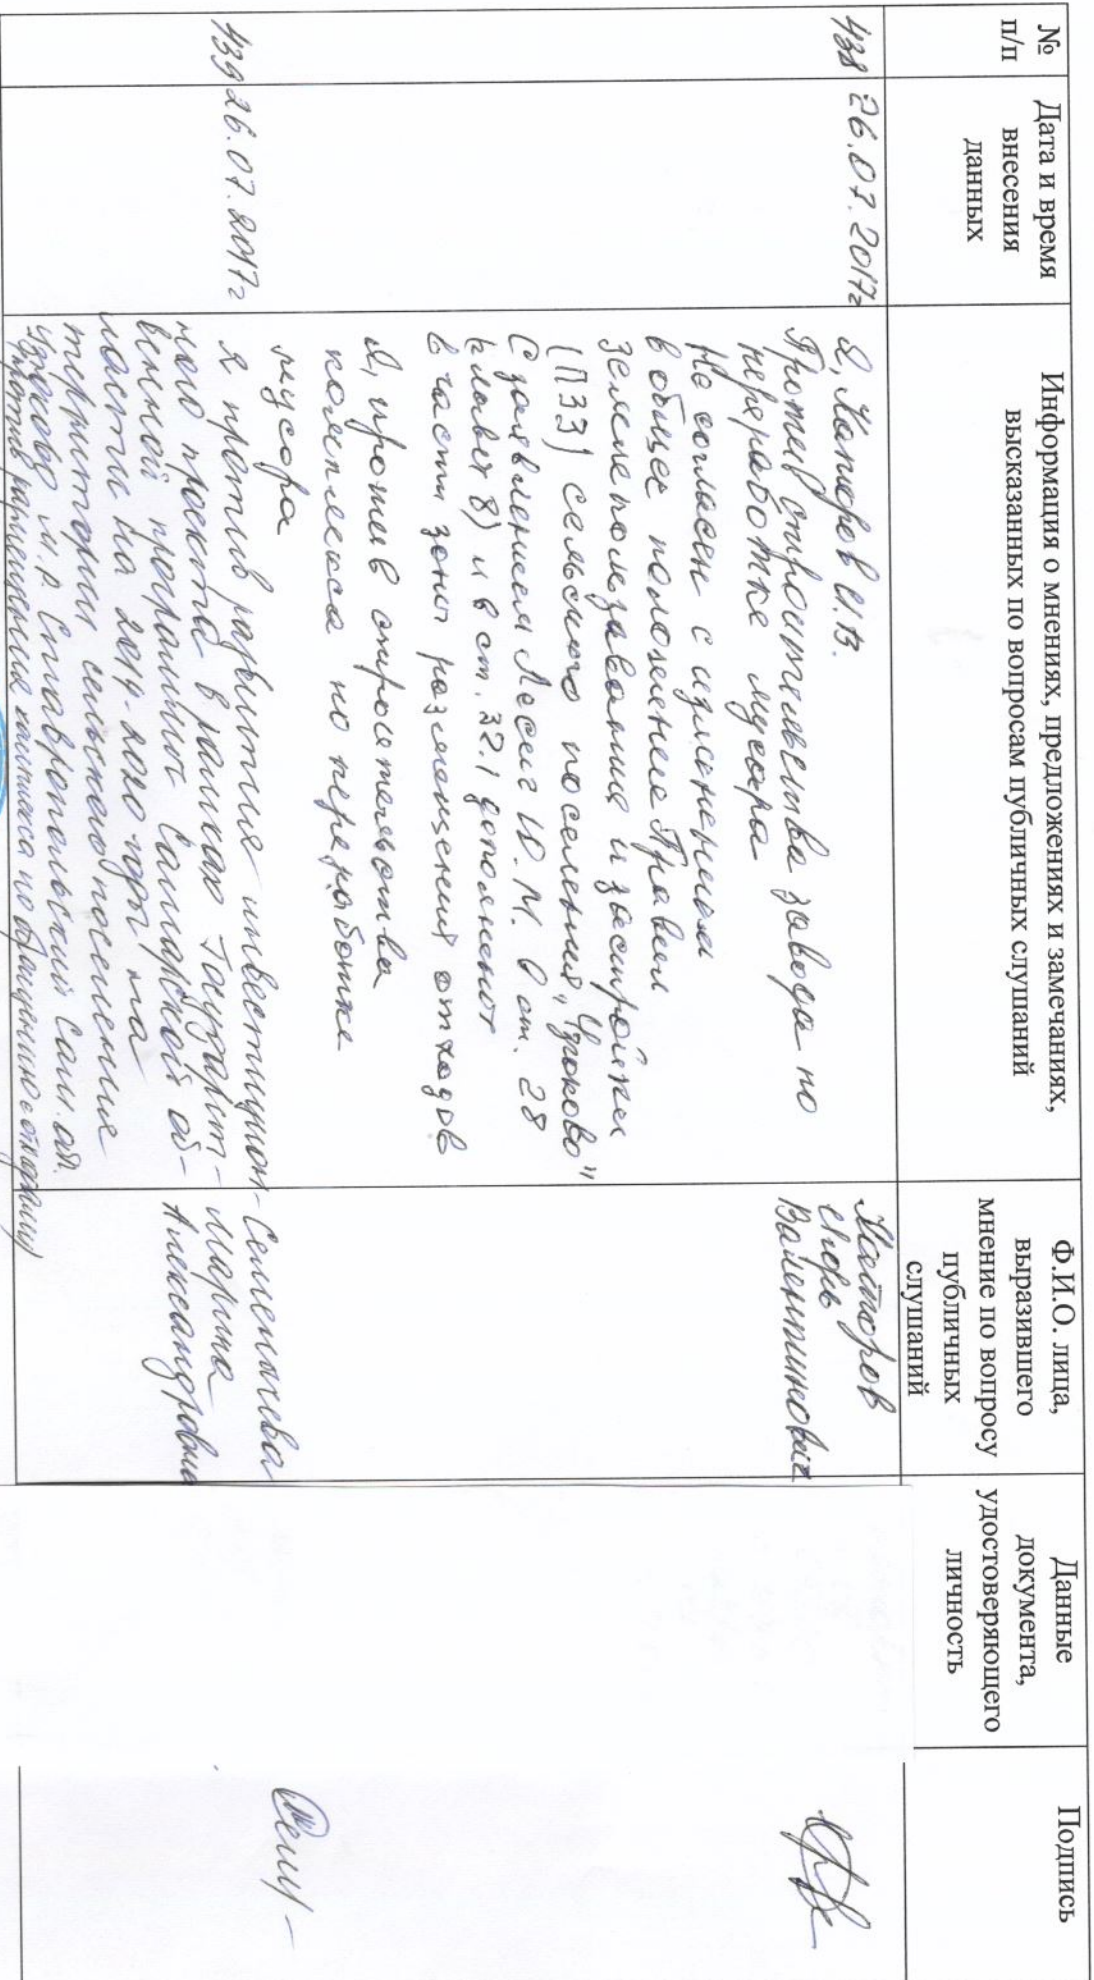 №
п/п
Дата и время
внесения
данных
Информация о мнениях, предложениях и замечаниях,
высказанных по вопросам публичных слушаний
Ф.И.О. лица,
выразившего
мнение по вопросу
публичных
слушаний
Данные
документа,
удостоверяющего
личность
Подпись
438
26.07.2017г
Я, И.В.
Против строительства завода по
переработке мусора
Не согласен с изменениями
в общее положение Правил
землепользования и застройки
(ПЗЗ) сельского поселения "Узюково"
С заявлением Ю.М. в ст. 28
8) и в ст. 32.1
в части зоны размещения отходов
Я, против строительства
комплекса по переработке
мусора
Игорь
Валентинович
439
26.07.2017г
я против развития инвестицион-
ного проекта в рамках Государст-
венной программы Самарской об-
ласти на 2014-2020 годы на
территории сельского поселения
Узюково м.р. Ставропольский Сам. обл.
(против размещения комплекса по обращению с отходами)
Марина
Александровна